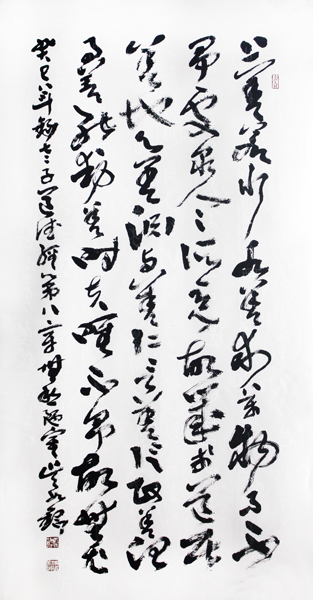 上善若水水善利萬物而不
爭處衆人之所惡故幾於道居
善地心善淵與善仁言善信正善治
事善能動善時夫唯不爭故無尤
癸巳年錄老子道德經第八章陋室